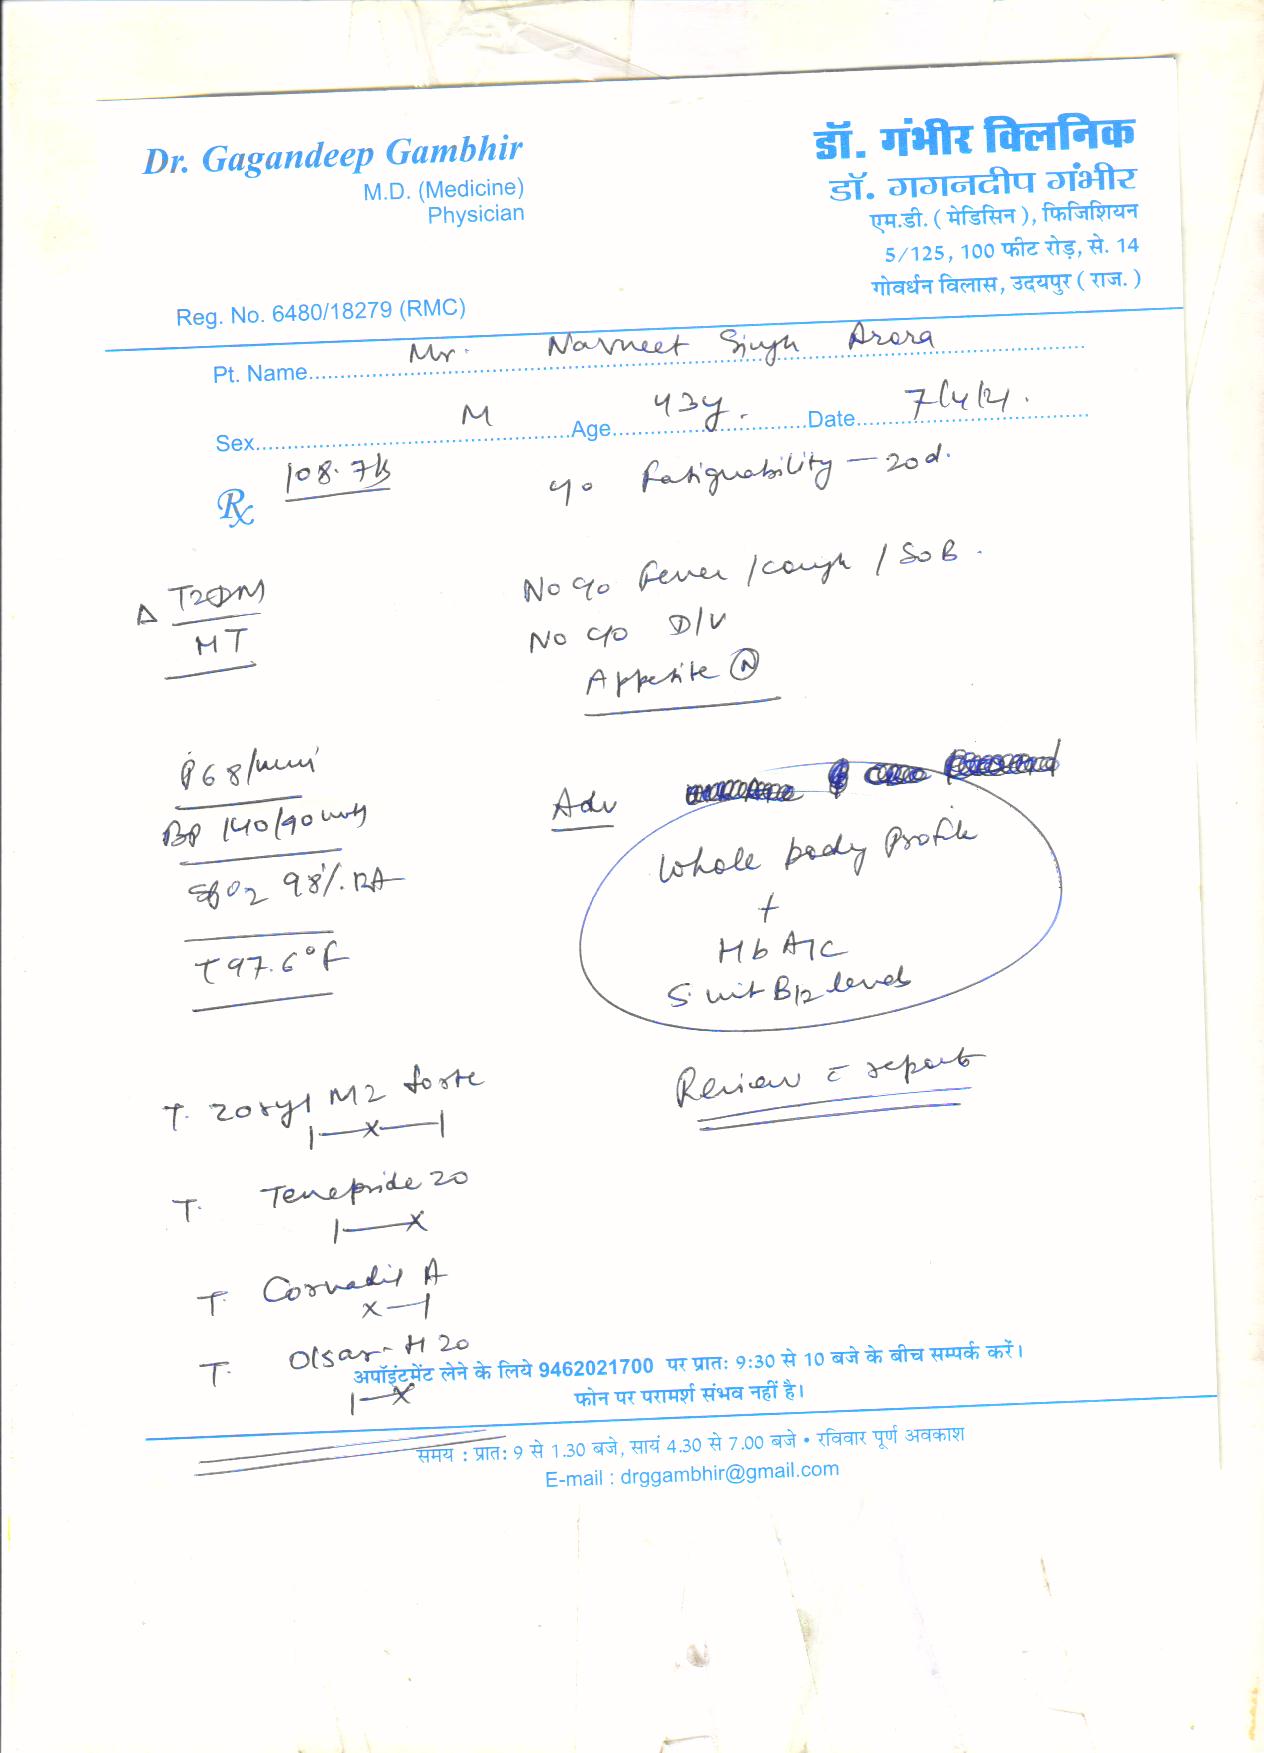 Dr. Gagandeep Gambhir
M.D. (Medicine)
Physician
Reg. No. 6480/18279 (RMC)
डॉ. गंभीर क्लिनिक
डॉ. गगनदीप गंभीर
एम.डी. ( मेडिसिन ), फिजिशियन
5/125, 100 फीट रोड़, से. 14
गोवर्धन विलास, उदयपुर ( राज. )
Pt. Name Mr. Navneet Singh Arora
Sex M Age 43y. Date 7/4/21.
Rx 108.7k
c/o Fatiguability — 20d.
No c/o Fever / cough / SOB.
No c/o D/V
Appetite N
Δ T2DM
HT
P 68/min
BP 140/90
SpO2 98% RA
T 97.6°F
Adv
Whole body Profile
+
HbA1C
S. vit B12 levels
Review c̄ reports
T. Zoryl M2 forte
1—x—1
T. Tenepride 20
1—x
T. Corvadil A
x—1
T. Olsar-H 20
1—x
अपॉइंटमेंट लेने के लिये 9462021700 पर प्रातः 9:30 से 10 बजे के बीच सम्पर्क करें।
फोन पर परामर्श संभव नहीं है।
समय : प्रातः 9 से 1.30 बजे, सायं 4.30 से 7.00 बजे • रविवार पूर्ण अवकाश
E-mail : drggambhir@gmail.com